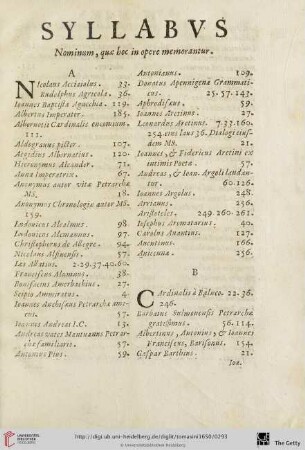 SYLLABVS
Nominum, quæ hoc in opere memorantur.
A
Nicolaus Acciaiolus. 33.
Rudolphus Agricola. 36.
Ioannes Baptista Aguccbia. 119.
Albertus Imperator. 185.
Albornotii Cardinalis encomium.
112.
Aldograuus pictor. 107.
Aegidius Albornotius. 120.
Hieronymus Alexander. 71.
Anna Imperatrix. 67.
Anonymus autor vitæ Petrarchæ
MS. 18.
Anonymus Chronologiæ autor MS.
159.
Ludouicus Alealmus. 98.
Ludouicus Alemannus. 97.
Christophorus de Allegre. 94.
Nicolaus Alpinensis. 57.
Leo Allatius. 2.29.37.40.60.
Franciscus Alamanus. 38.
Bonifacius Amerbachius. 27.
Scipio Ammiratus. 4.
Ioannes Anchisæus Petrarchæ ami-
cus. 57.
Ioannes Andreas I.C. 13.
Andreas vates Mantuanus Petrar-
chæ familiaris. 57.
Antoninus Pius. 59.
Antonianus. 109.
Donatus Apennigena Grammati-
cus. 25. 57. 143.
Aphrodisæus. 59.
Ioannes Aretinus. 27.
Leonardus Aretinus. 7.33.160.
254. eius laus 36. Dialogi eiusf-
dem MS. 21.
Ioannes, & Fidericus Aretini ex
intimis Poetæ. 57.
Andreas, & Ioan. Argoli lendan-
tur. 60. 126.
Ioannes Argolus. 248.
Arrianus. 256.
Aristoteles. 249. 260. 261.
Iosephus Aromatarius. 40.
Carolus Auantius. 127.
Auentinus. 166.
Auicenna. 256.
B
Cardinalis à Balneo. 22. 36.
246.
Barbatus Sulmonensis Petrarchæ
gratissimus. 56. 114.
Albertinus, Antonius, & Ioannes
Franciscus, Barisonus. 154.
Gaspar Barthius. 21.
Ioa.
UNIVERSITÄTS-
BIBLIOTHEK
HEIDELBERG
http://digi.ub.uni-heidelberg.de/diglit/tomasini1650/0293
The Getty